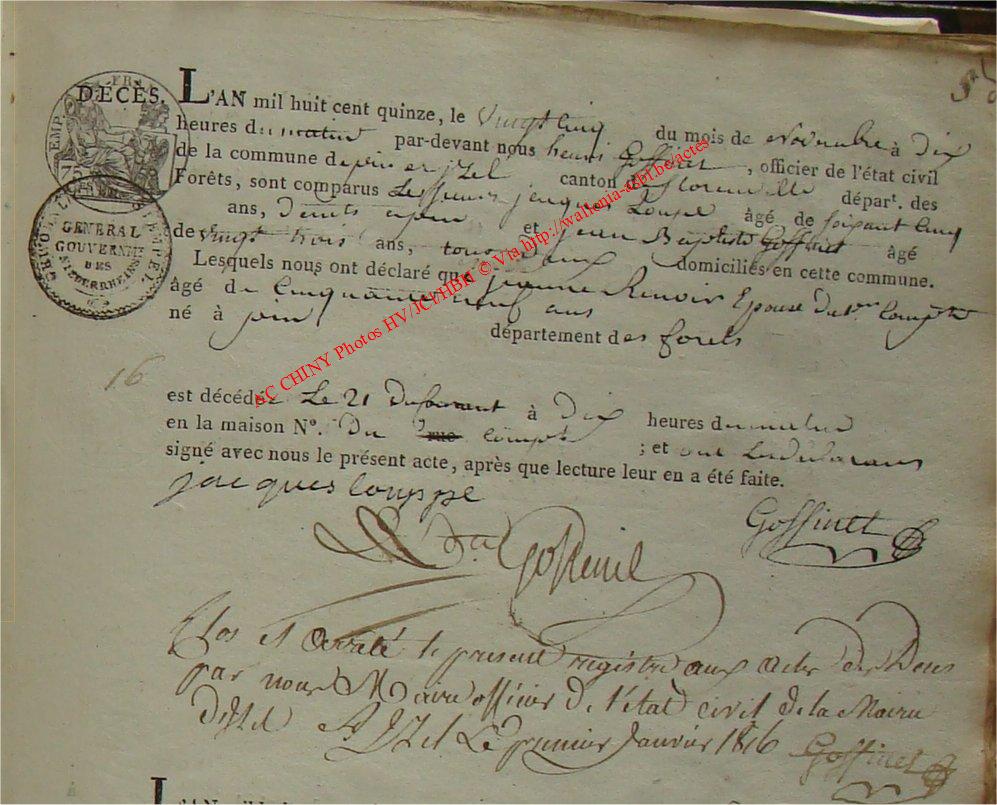 DÉCÈS.
L'AN mil huit cent quinze, le vingt cinq du mois de novembre à dix
heures du matin par-devant nous henri Goffinet, officier de l'état civil
de la commune de pin et jzel canton de florenville dépar. des
Forêts, sont comparus Les sieurs jacques Louppe âgé de soixant cinq
ans, et jean Baptiste Goffinet âgé
de vingt trois ans, tous deux domiciliés en cette commune.
Lesquels nous ont déclaré que jeanne Renoir Epouse du Sr. Comparant
âgé de Cinquante neuf ans
né à join département des forets
16
est décédée Le 21 du Courant à dix heures du matin
en la maison N°. du rue comp ; et ont Les declarans
signé avec nous le présent acte, après que lecture leur en a été faite.
jacques louppe
Goffinet
Goffinet
Clos et arreté le present registre aux actes de Deces
par nous Maire officier de l'état civil de la Mairie
D'jzel A JZel Le premier Janvier 1816 Goffinet
L'AN
EMP. FRA
75
GENERAL
GOUVERNEM
DES
NIEDERRHEINS
AC CHINY Photos HV/JCI/HBH © Via http://wallonia-asbl.be/actes